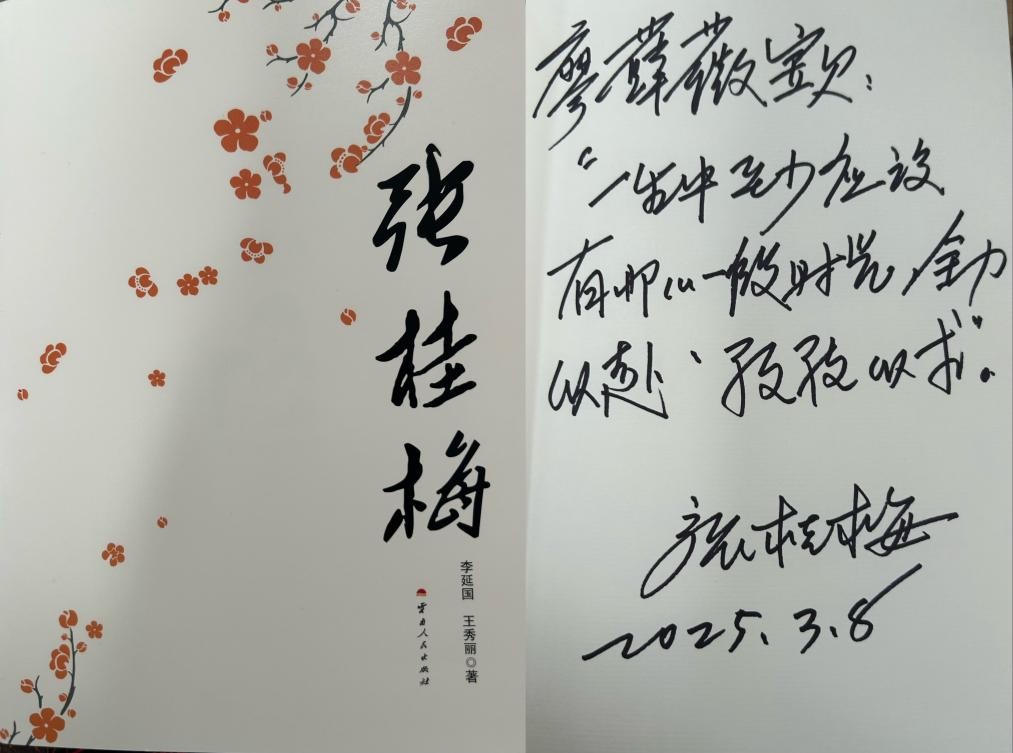 张桂梅
李延国 王秀丽◎著
云南人民出版社
廖薇宝贝：
“一生中至少应该
有那么一段时光，全力
以赴、孜孜以求”。
张桂梅
2025.3.8